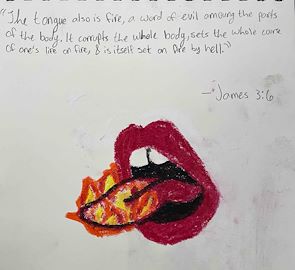 "The tongue also is fire, a word of evil among the parts
of the body. It corrupts the whole body, sets the whole course
of one's life on fire, & is itself set on fire by hell."
- James 3:6